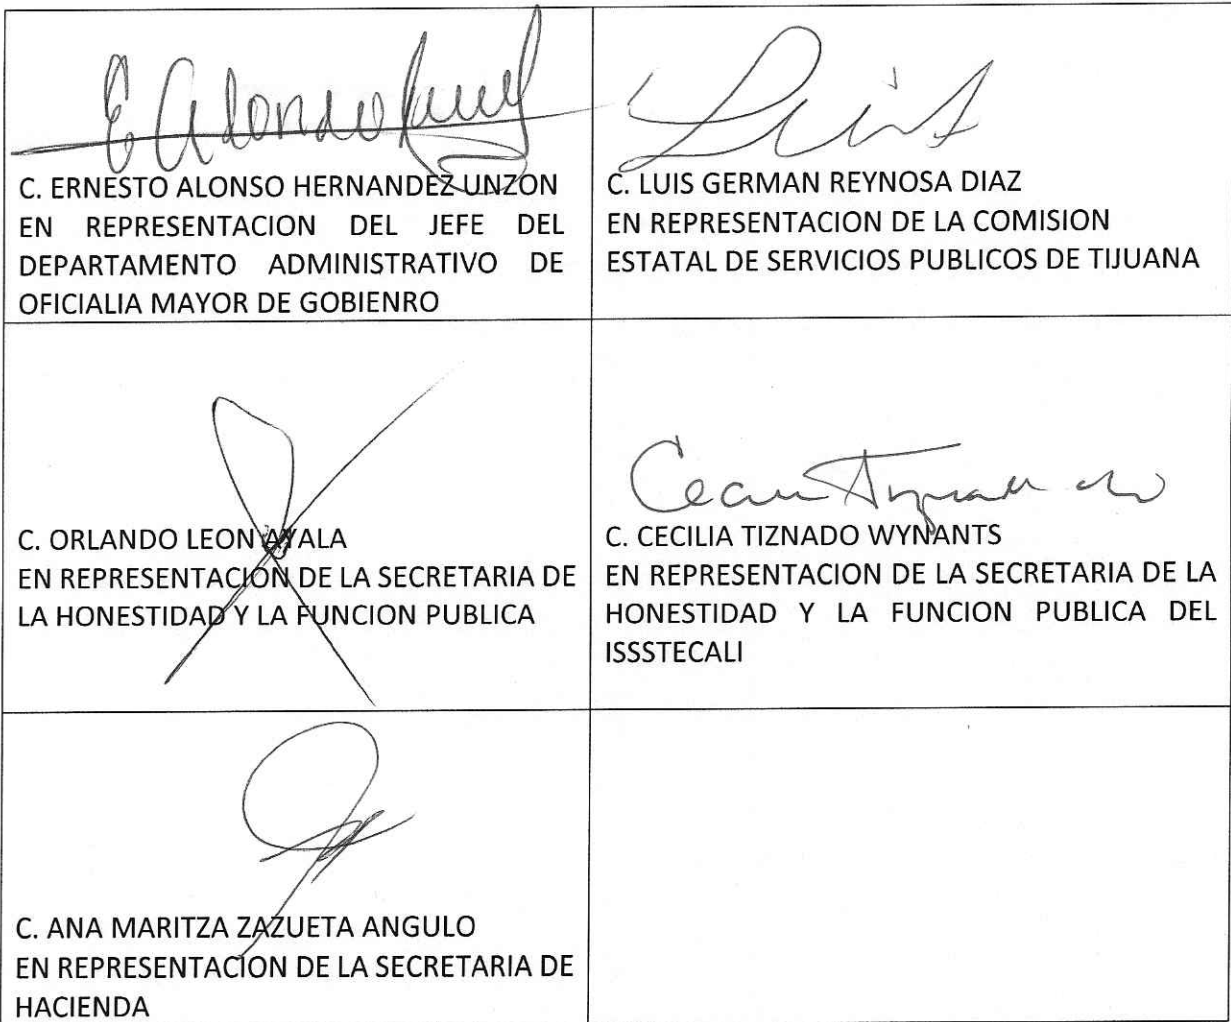 E Alonso
C. ERNESTO ALONSO HERNANDEZ UNZON
EN REPRESENTACION DEL JEFE DEL
DEPARTAMENTO ADMINISTRATIVO DE
OFICIALIA MAYOR DE GOBIENRO
Luis
C. LUIS GERMAN REYNOSA DIAZ
EN REPRESENTACION DE LA COMISION
ESTATAL DE SERVICIOS PUBLICOS DE TIJUANA
C. ORLANDO LEON AYALA
EN REPRESENTACION DE LA SECRETARIA DE
LA HONESTIDAD Y LA FUNCION PUBLICA
C. CECILIA TIZNADO WYNANTS
EN REPRESENTACION DE LA SECRETARIA DE LA
HONESTIDAD Y LA FUNCION PUBLICA DEL
ISSSTECALI
C. ANA MARITZA ZAZUETA ANGULO
EN REPRESENTACION DE LA SECRETARIA DE
HACIENDA